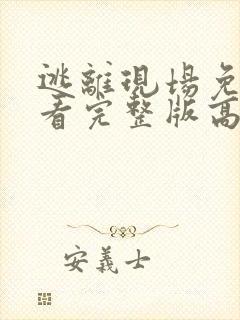 逃離現場免
看完整版高
安義士